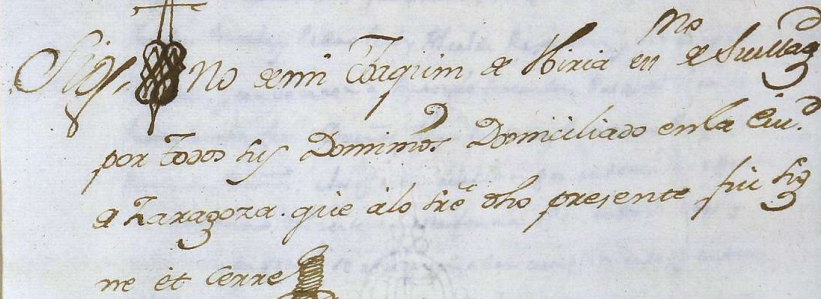 Sig✠No de mi Joaquim de Hiria en no de su Mag
por todos sus Dominios Domiciliado en la Ciu.d
de Zaragoza. que alo sre dho presente fui sig
ne et Cerre